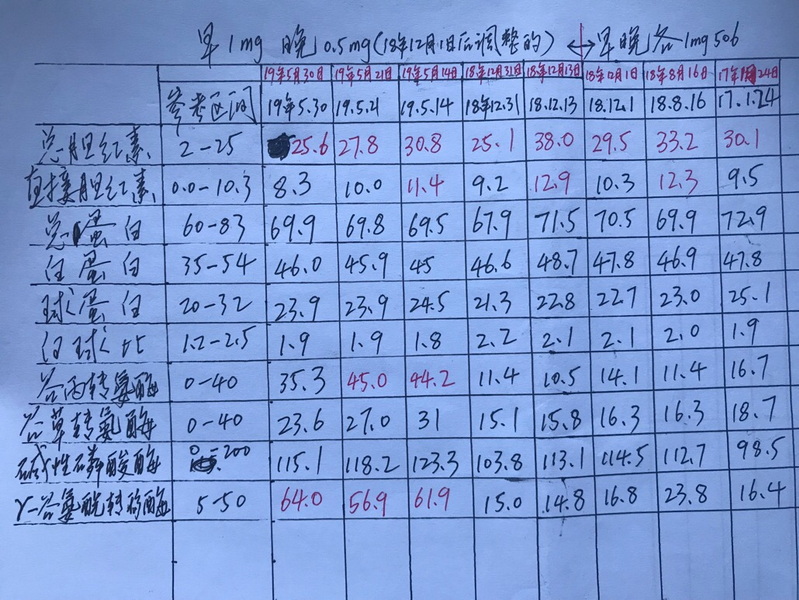 早1mg 晚0.5mg(18年12月1日后调整的) ↔早晚各1mg 506
19年5月30日 19年5月21日 19年5月14日 18年12月31日 18年12月13日 18年12月1日 18年8月16日 17年1月24日
参考区间 19年5.30 19.5.21 19.5.14 18年12.31 18.12.13 18.12.1 18.8.16 17.1.24
总胆红素 2-25 25.6 27.8 30.8 25.1 38.0 29.5 33.2 30.1
直接胆红素 0.0-10.3 8.3 10.0 11.4 9.2 12.9 10.3 12.3 9.5
总蛋白 60-83 69.9 69.8 69.5 67.9 71.5 70.5 69.9 72.9
白蛋白 35-54 46.0 45.9 45 46.6 48.7 47.8 46.9 47.8
球蛋白 20-32 23.9 23.9 24.5 21.3 22.8 22.7 23.0 25.1
白球比 1.2-2.5 1.9 1.9 1.8 2.2 2.1 2.1 2.0 1.9
谷丙转氨酶 0-40 35.3 45.0 44.2 11.4 10.5 14.1 11.4 16.7
谷草转氨酶 0-40 23.6 27.0 31 15.1 15.8 16.3 16.3 18.7
碱性磷酸酶 0-200 115.1 118.2 123.3 103.8 113.1 114.5 112.7 98.5
γ-谷氨酰转移酶 5-50 64.0 56.9 61.9 15.0 14.8 16.8 23.8 16.4